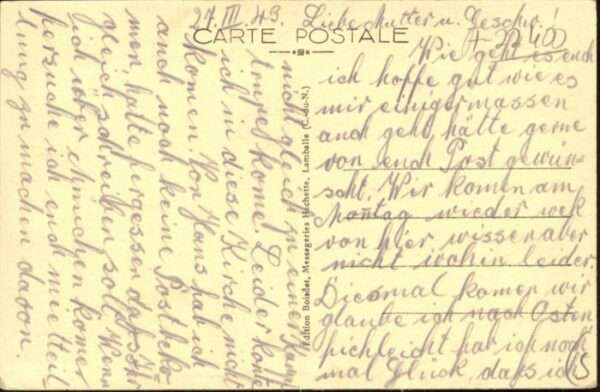 27. III. 43. Liebe Mutter u. Geschw!
CARTE POSTALE
Wie geht es euch
ich hoffe gut wie es
mir einigermassen
auch geht hätte gerne
von euch Post gewün-
scht. Wir komen am
Montag wieder wek
von hier wissen aber
nicht wohin leider.
Diesmal komen wir
glaube ich nach Osten
vielleicht hab ich noch
mal Glück, daß ich
nicht gleich in einen
komme. Leider konte
ich in diese Kirche nicht
komen. Von Hans hab ich
auch noch keine Post beko-
men hatte vergessen das Ihr
gleich schreiben solt. Wenn
ich rüber komen
versuche ich euch mitteil
ung zu machen davon.
Edition Boisdet, Messageries Hachette, Lamballe (C.-du-N.)